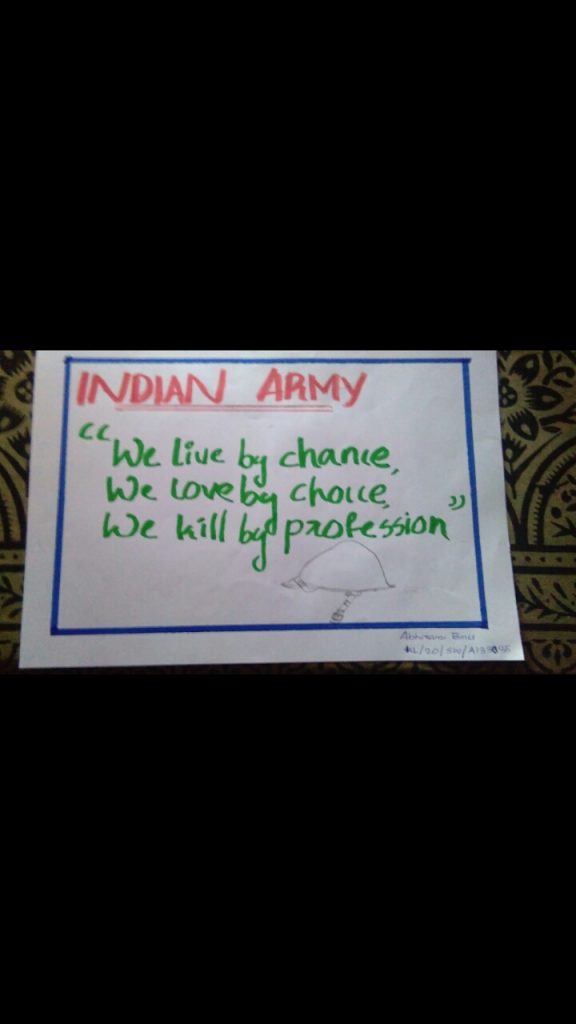 INDIAN ARMY
"We live by chance,
We love by choice,
We kill by profession"